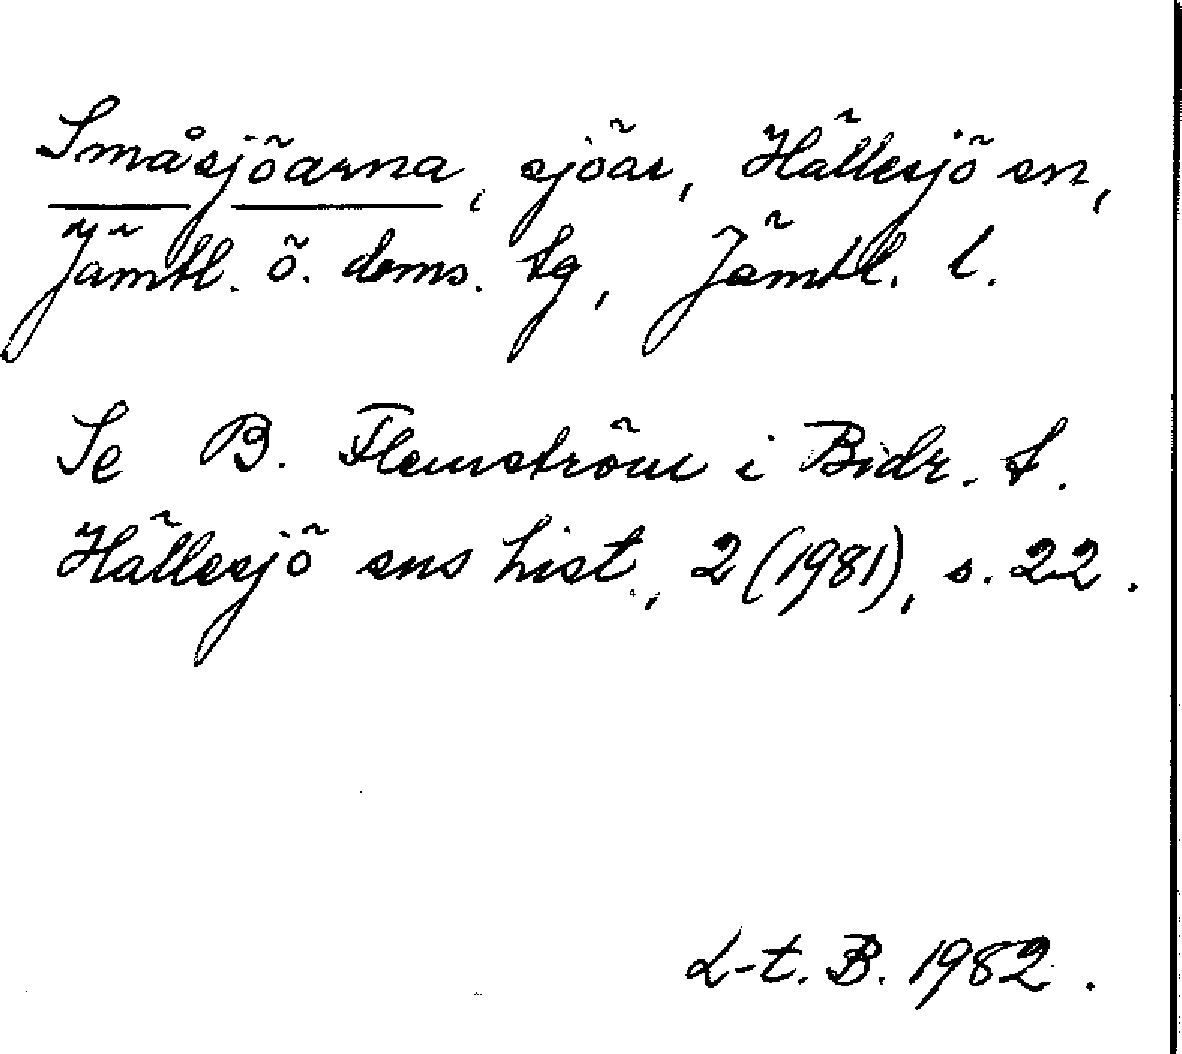 Småsjöarna, sjöar, Hällesjö sn,
Jämtl. ö. doms. tg, Jämtl. l.
Se B. Flemström i Bidr. t.
Hällesjö sns hist., 2 (1981), s. 22.
L-t. B. 1982.